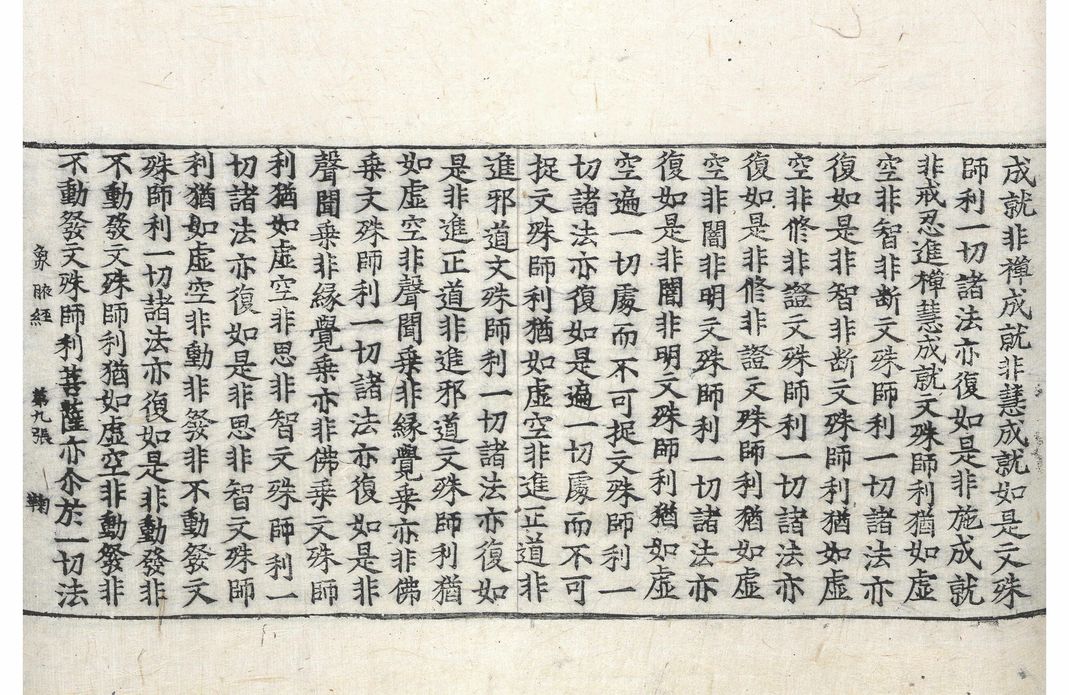 成就非禪成就非慧成就如是文殊
師利一切諸法亦復如是非施成就
非戒忍進禪慧成就文殊師利猶如虛
空非智非断文殊師利一切諸法亦
復如是非智非断文殊師利猶如虛
空非修非證文殊師利一切諸法亦
復如是非修非證文殊師利猶如虛
空非闇非明文殊師利一切諸法亦
復如是非闇非明文殊師利猶如虛
空遍一切處而不可捉文殊師利一
切諸法亦復如是遍一切處而不可
捉文殊師利猶如虛空非進正道非
進邪道文殊師利一切諸法亦復如
是非進正道非進邪道文殊師利猶
如虛空非聲聞乗非縁覺乗亦非佛
乗文殊師利一切諸法亦復如是非
聲聞乗非縁覺乗亦非佛乗文殊師
利猶如虛空非思非智文殊師利一
切諸法亦復如是非思非智文殊師
利猶如虛空非動非發非不動發文
殊師利一切諸法亦復如是非動發非
不動發文殊師利猶如虛空非動發非
不動發文殊師利菩薩亦尒於一切法
象腋經 第九張 鞠